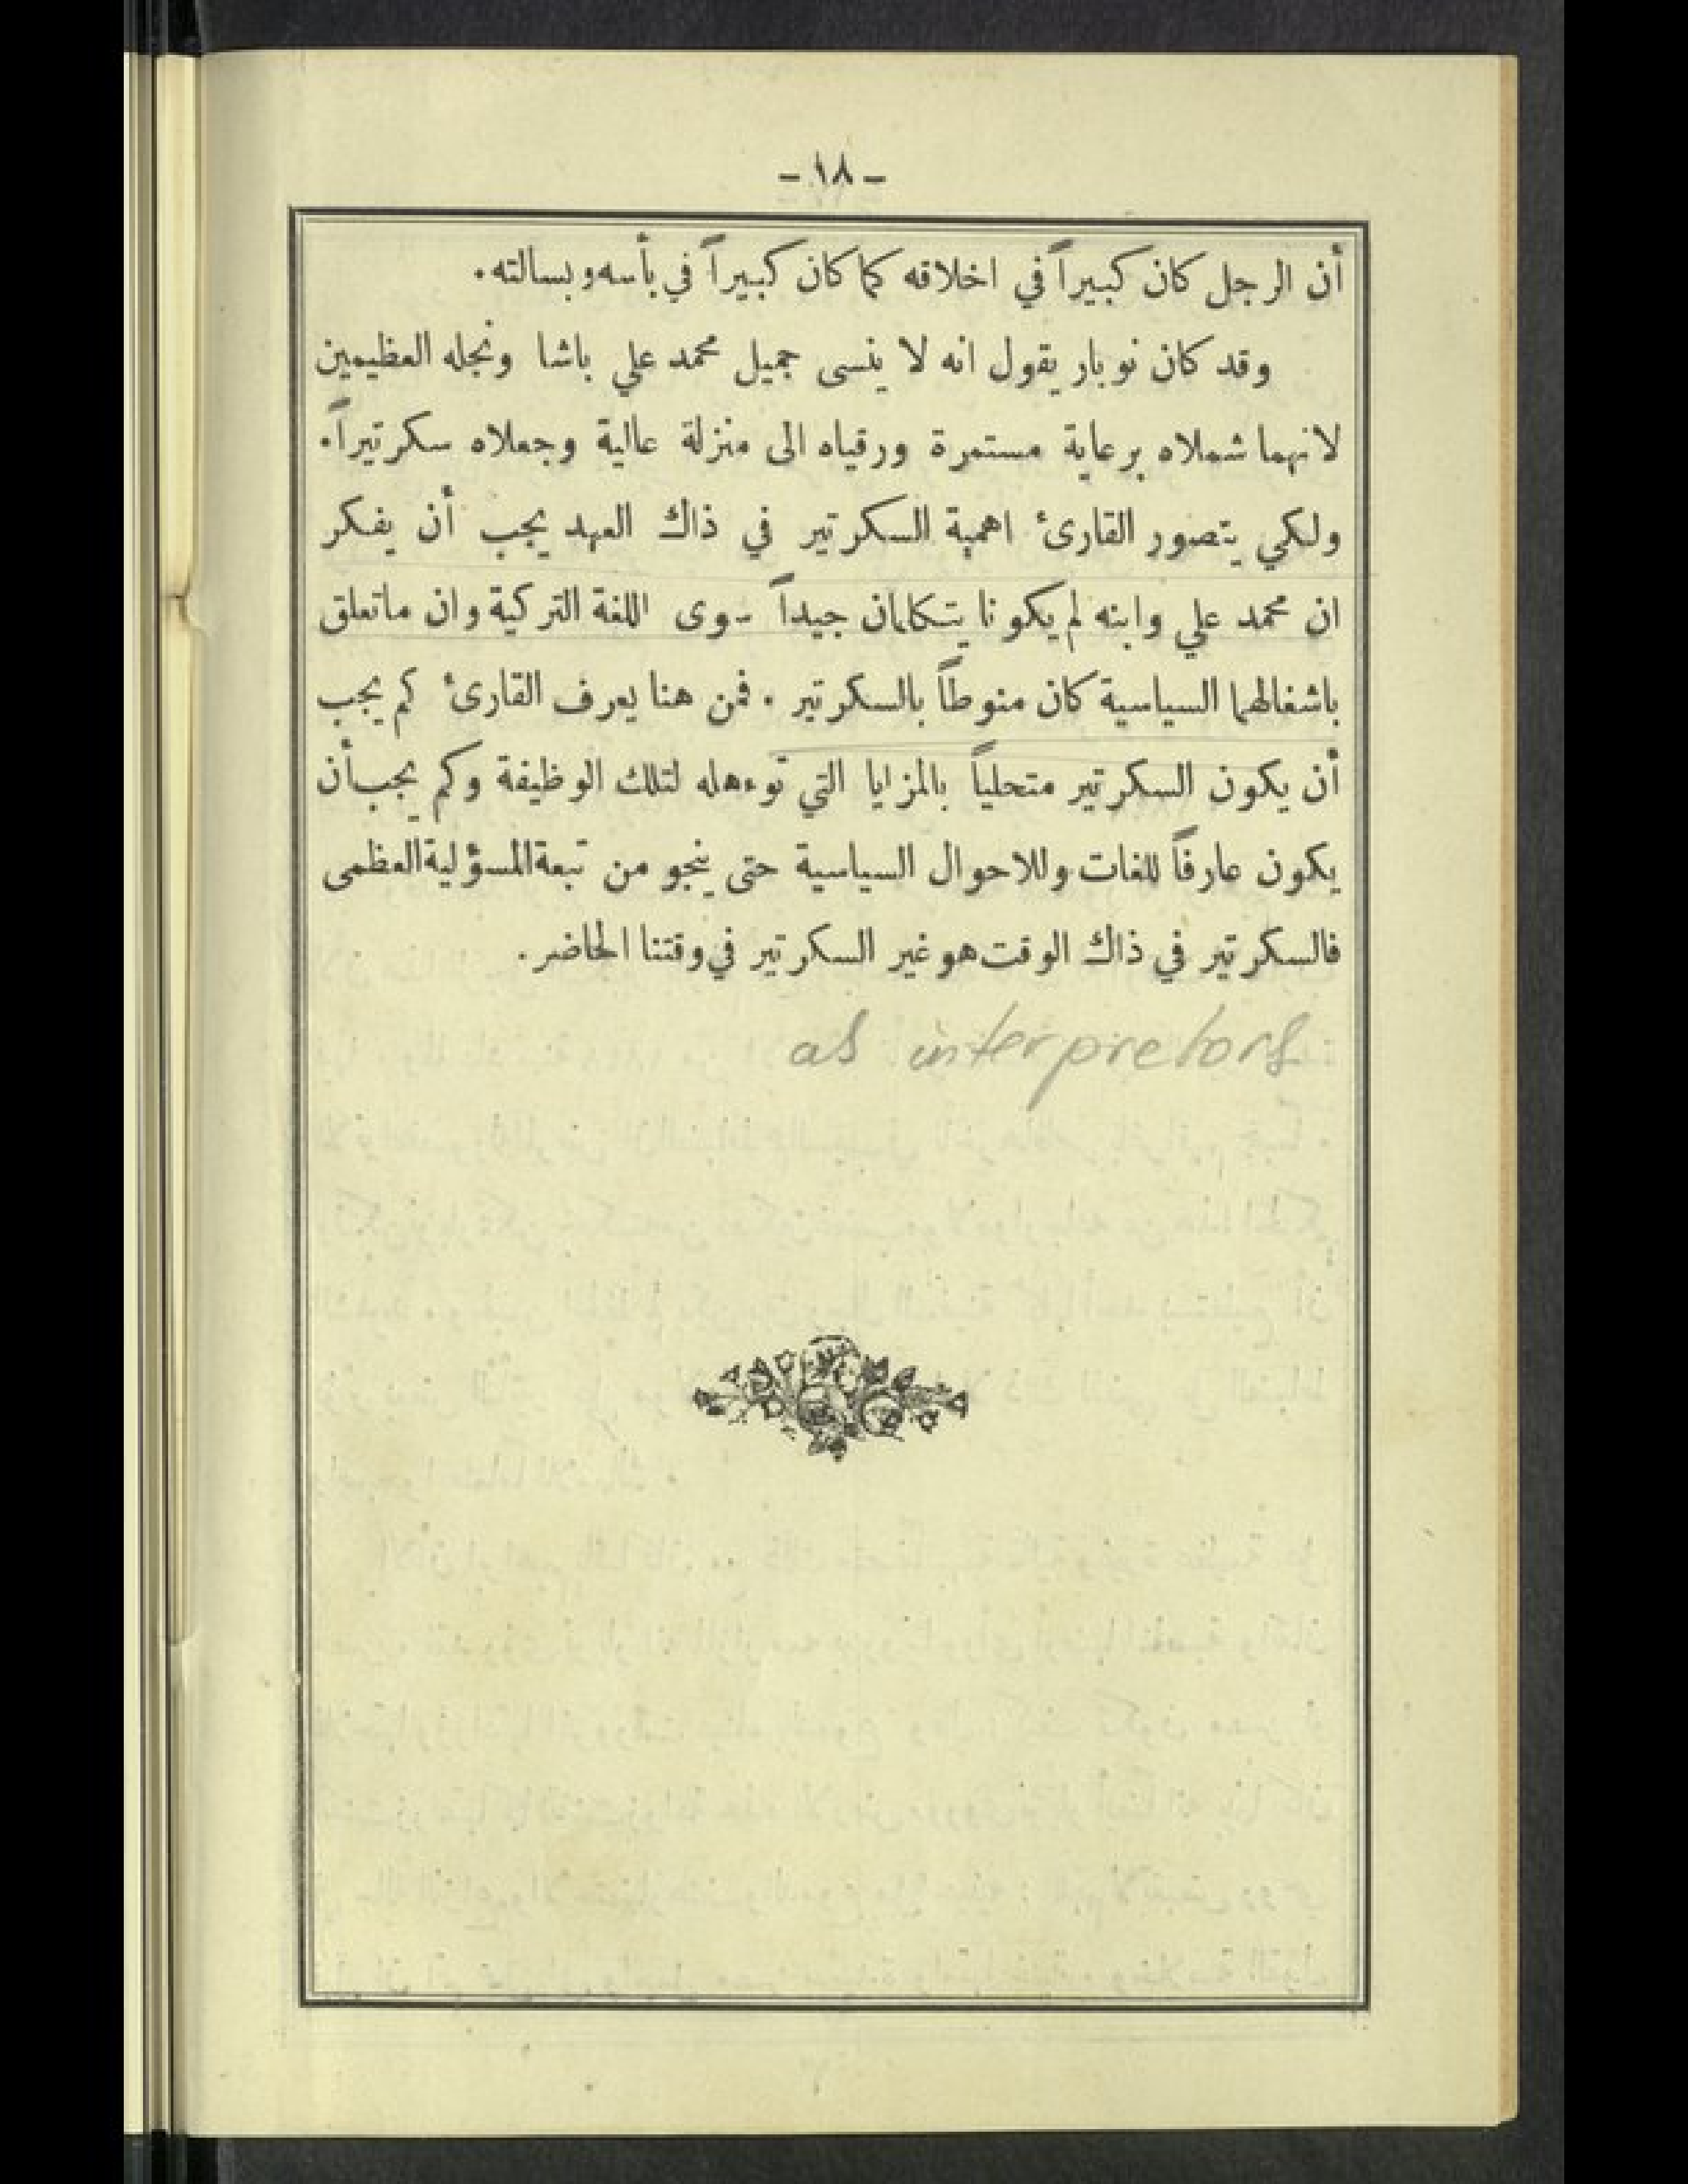 - ١٨ -
أن الرجل كان كبيراً في اخلاقه كما كان كبيراً في بأسه وبسالته.
وقد كان نوبار يقول انه لا ينسى جميل محمد علي باشا ونجله العظيمين
لانهما شملاه برعاية مستمرة ورقياه الى منزلة عالية وجعلاه سكرتيراً.
ولكي يتصور القارئ اهمية السكرتير في ذاك العهد يجب أن يفكر
ان محمد علي وابنه لم يكونا يتكلمان جيداً سوى اللغة التركية وان ماتعلق
باشغالهما السياسية كان منوطاً بالسكرتير. فمن هنا يعرف القارئ كم يجب
أن يكون السكرتير متحلياً بالمزايا التي توءهله لتلك الوظيفة وكم يجب أن
يكون عارفاً للغات وللاحوال السياسية حتى ينجو من تبعة المسؤلية العظمى
فالسكرتير في ذاك الوقت هو غير السكرتير في وقتنا الحاضر.
as interpretors